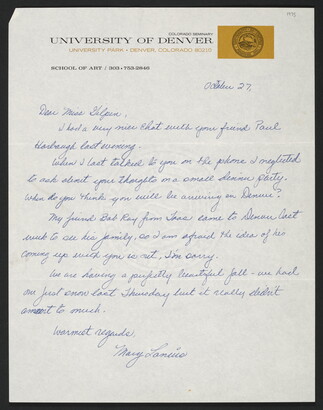 1975
COLORADO SEMINARY
UNIVERSITY OF DENVER
UNIVERSITY PARK • DENVER, COLORADO 80210
SCHOOL OF ART / 303 • 753-2846
October 27.
Dear Miss Gilpin,
I had a very nice chat with your friend Paul
Harbaugh last evening.
When I last talked to you on the phone I neglected
to ask about your thoughts on a small dinner party.
When do you think you will be arriving in Denver?
My friend Bob Ray from Taos came to Denver last
week to see his family, so I am afraid the idea of his
coming up with you is out, I'm sorry.
We are having a perfectly beautiful fall - we had
our first snow last Thursday but it really didn't
amount to much.
Warmest regards,
Mary